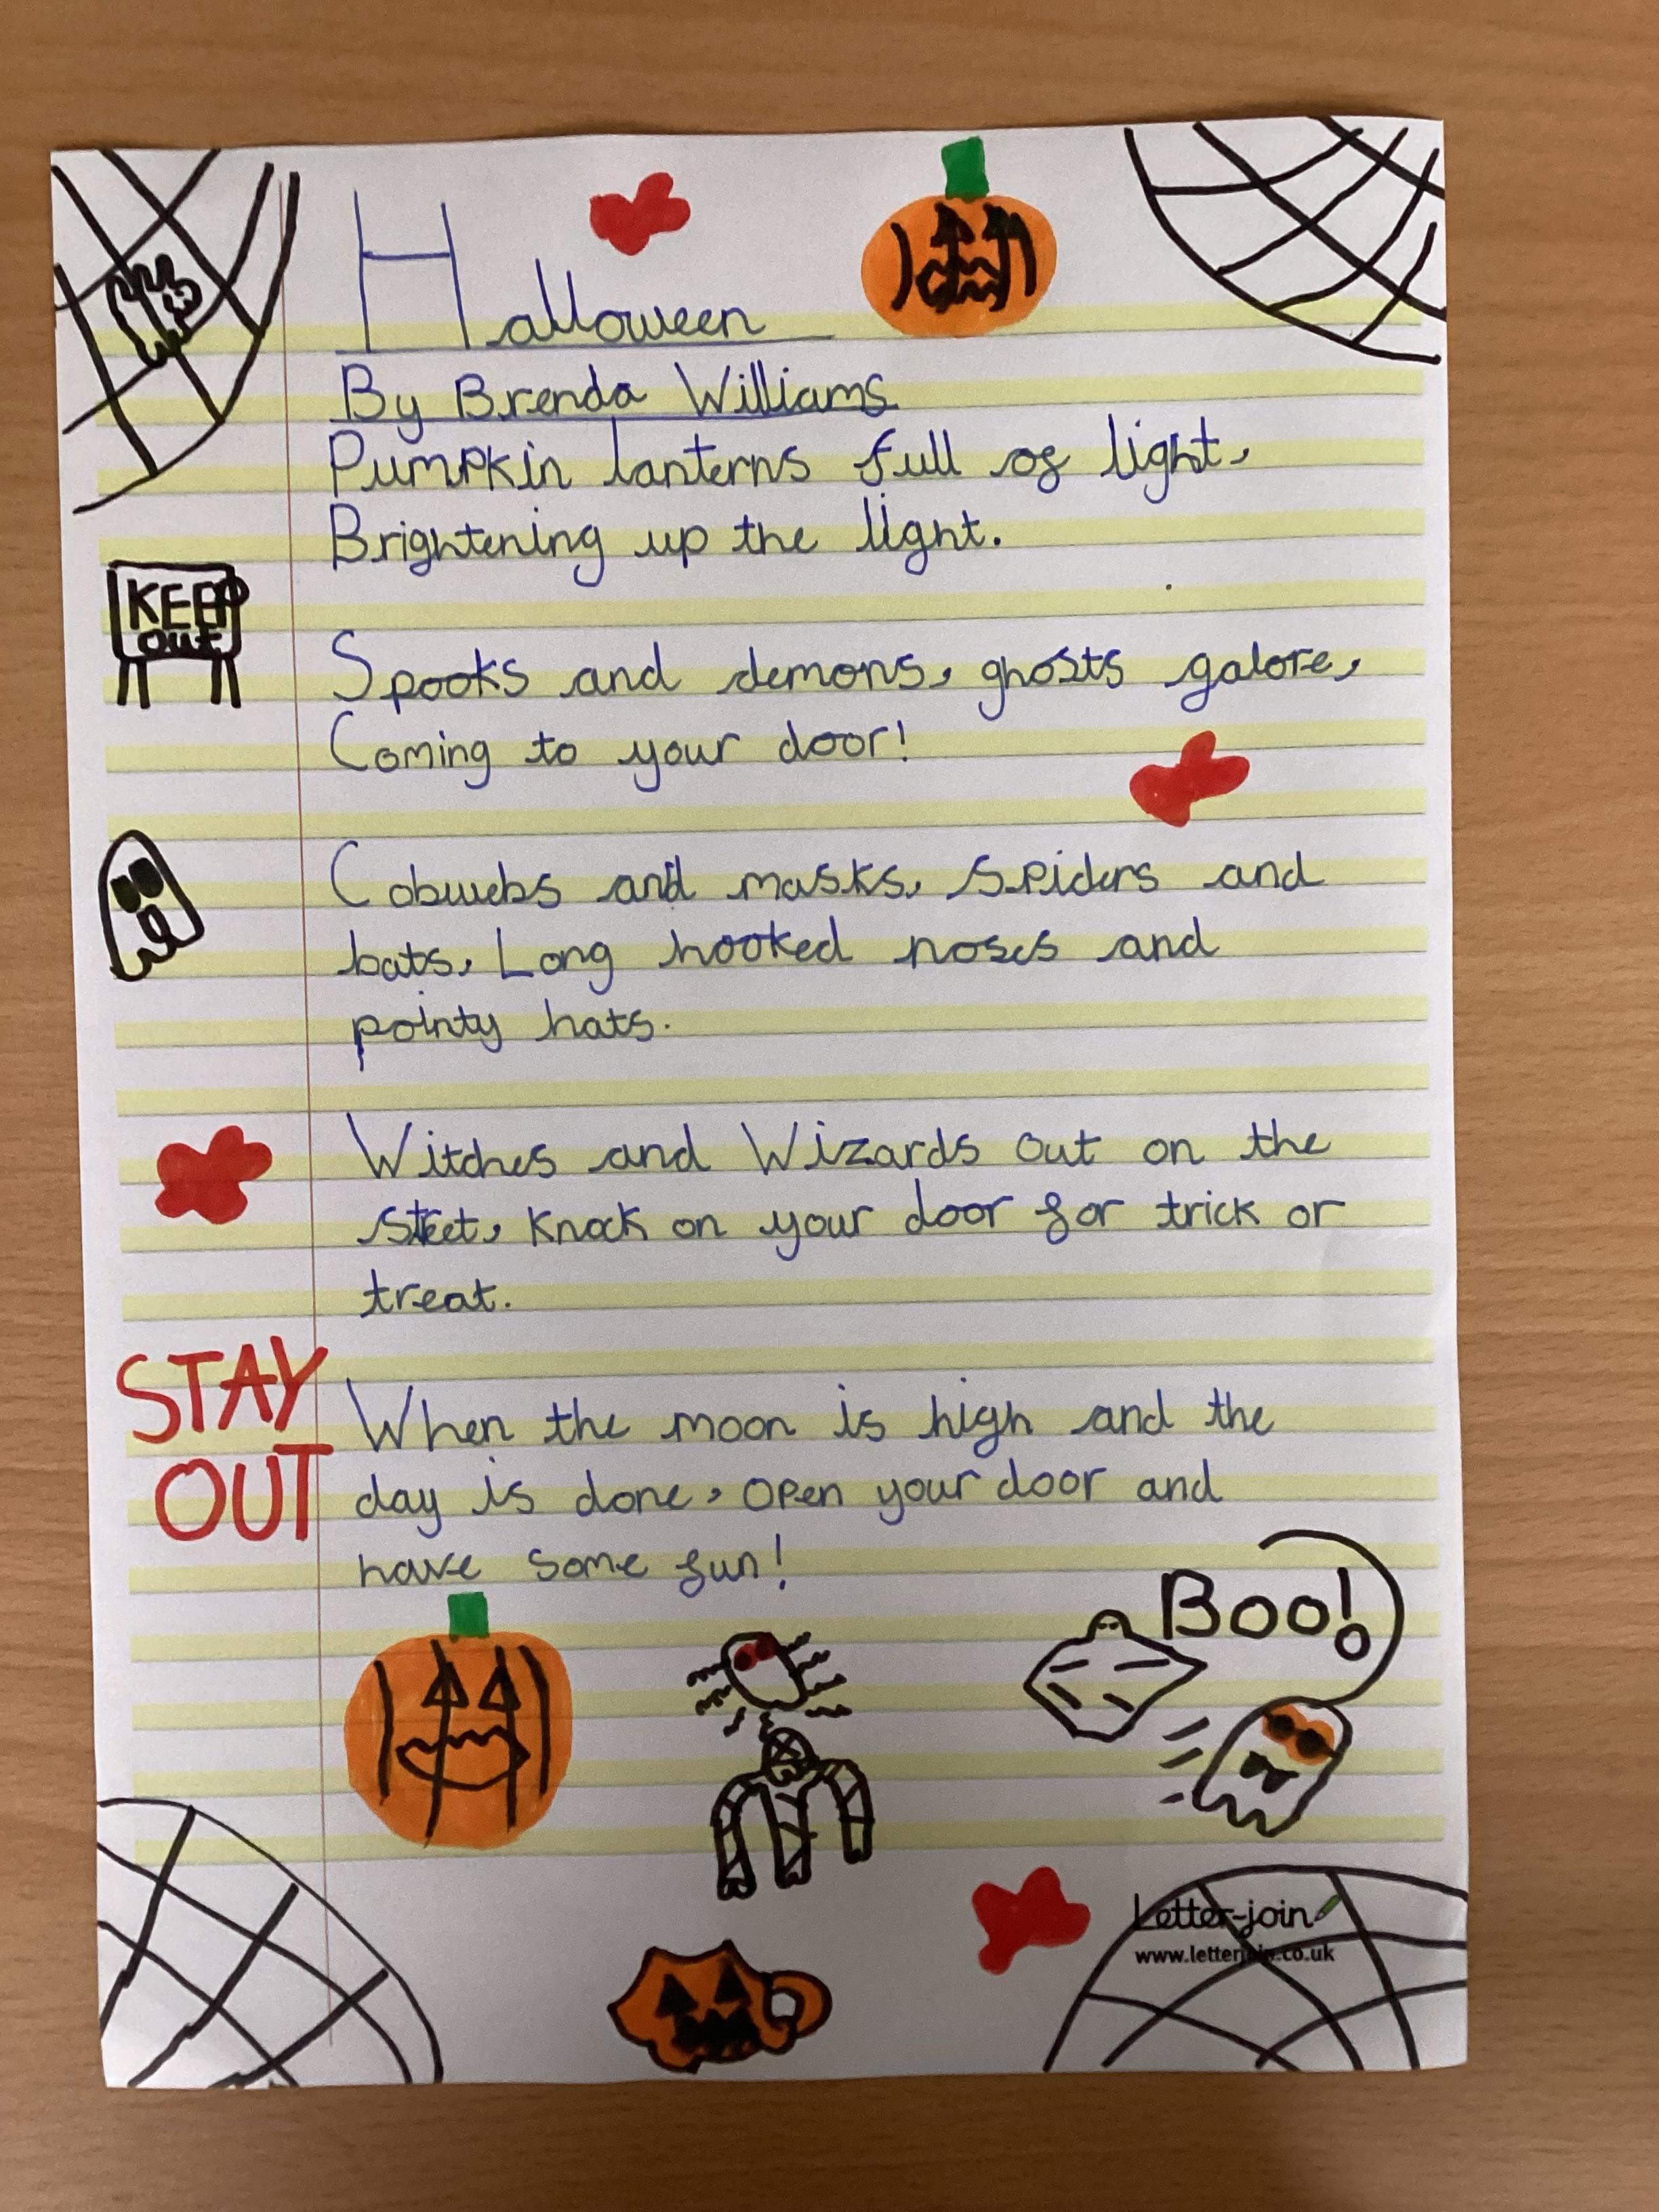 Halloween
By Brenda Williams
Pumpkin lanterns full of light,
Brightening up the light.
KEEP
out
Spooks and demons, ghosts galore,
Coming to your door!
Cobwebs and masks, Spiders and
bats, Long hooked noses and
pointy hats.
Witches and Wizards out on the
street, Knock on your door for trick or
treat.
STAY
OUT
When the moon is high and the
day is done, Open your door and
have some fun!
Boo!
Letter-join
www.letterjoin.co.uk